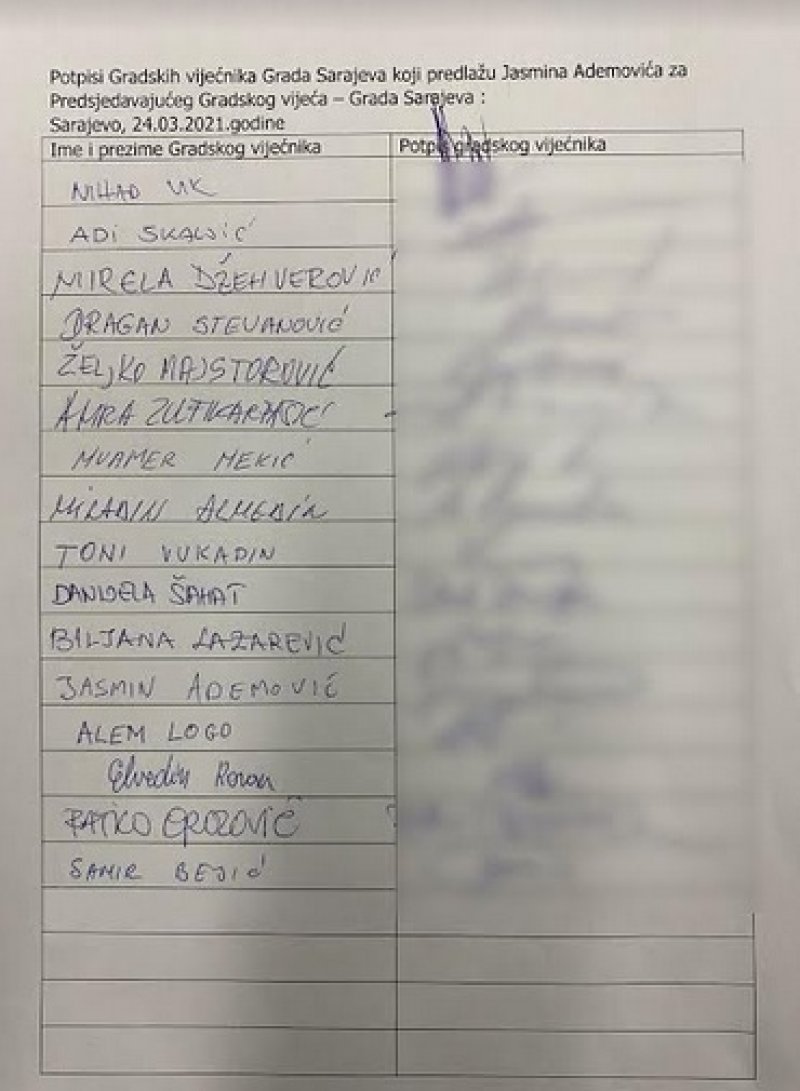 Potpisi Gradskih vijećnika Grada Sarajeva koji predlažu Jasmina Ademovića za
Predsjedavajućeg Gradskog vijeća – Grada Sarajeva :
Sarajevo, 24.03.2021.godine
Ime i prezime Gradskog vijećnika Potpis gradskog vijećnika
NIHAD UK
ADI ŠKALJIĆ
MIRELA DŽEHVEROVIĆ
DRAGAN STEVANOVIĆ
ŽELJKO MAJSTOROVIĆ
AMRA
MUAMER MEKIĆ
MILADIN ALMEDIN
TONI VUKADIN
DANIJELA ŠAHAT
BILJANA LAZAREVIĆ
JASMIN ADEMOVIĆ
ALEM LOGO
Elvedin
RATKO
SAMIR BEJIĆ